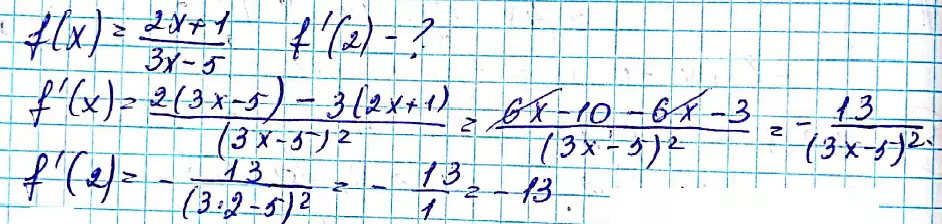 f(x) = (2x+1)/(3x-5)   f'(2) - ?
f'(x) = (2(3x-5) - 3(2x+1))/(3x-5)² = (6x-10-6x-3)/(3x-5)² = -13/(3x-5)².
f'(2) = -13/(3·2-5)² = -13/1 = -13.